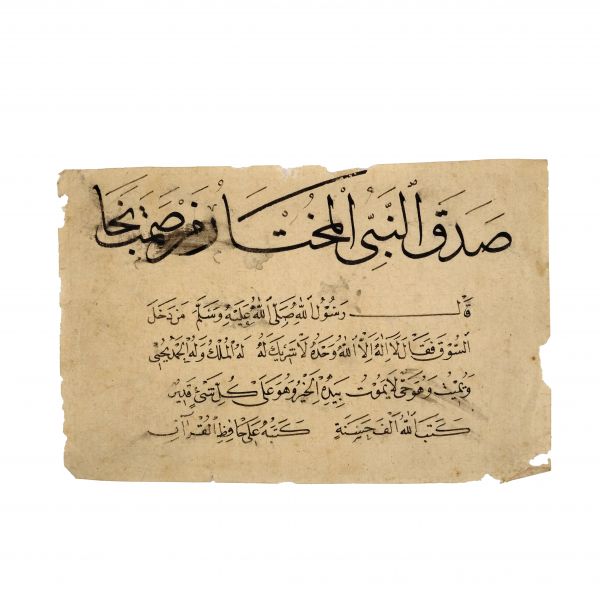 صَدَقَ النَّبِيُّ الْمُخْتَارُ مَنْ صَمَتَ نَجَا
قَالَ رَسُوْلُ اللهِ صَلَّى اللهُ عَلَيْهِ وَسَلَّمَ مَنْ دَخَلَ
السُّوْقَ فَقَالَ لَا اِلٰهَ اِلَّا اللهُ وَحْدَهُ لَا شَرِيْكَ لَهُ لَهُ الْمُلْكُ وَلَهُ الْحَمْدُ يُحْيِيْ
وَيُمِيْتُ وَهُوَ حَيٌّ لَا يَمُوْتُ بِيَدِهِ الْخَيْرُ وَهُوَ عَلٰى كُلِّ شَيْءٍ قَدِيْرٌ
كَتَبَ اللهُ اَلْفَ حَسَنَةٍ كَتَبَهُ عَلِي حَافِظِ الْقُرْآنِ